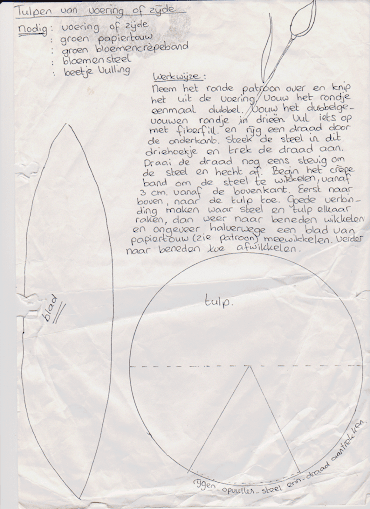 Tulpen van voering of zijde
Nodig: voering of zijde
: groen papiertouw
: groen bloemencrêpeband
: bloemensteel
: beetje vulling
Werkwijze:
Neem het ronde patroon over en knip
het uit de voering. Vouw het rondje
eenmaal dubbel. Vouw het dubbelge-
vouwen rondje in drieën. Vul iets op
met fiberfill en rijg een draad door
de onderkant. Steek de steel in dit
driehoekje en trek de draad aan.
Draai de draad nog eens stevig om
de steel en hecht af. Begin het crêpe
band om de steel te wikkelen, vanaf
3 cm. vanaf de bovenkant. Eerst naar
boven, naar de tulp toe. Goede verbin-
ding maken waar steel en tulp elkaar
raken, dan weer naar beneden wikkelen
en ongeveer halverwege een blad van
papiertouw (zie patroon) meewikkelen. Verder
naar beneden toe afwikkelen.
blad
tulp.
rijgen - opvullen - steel erin - draad aantrekken